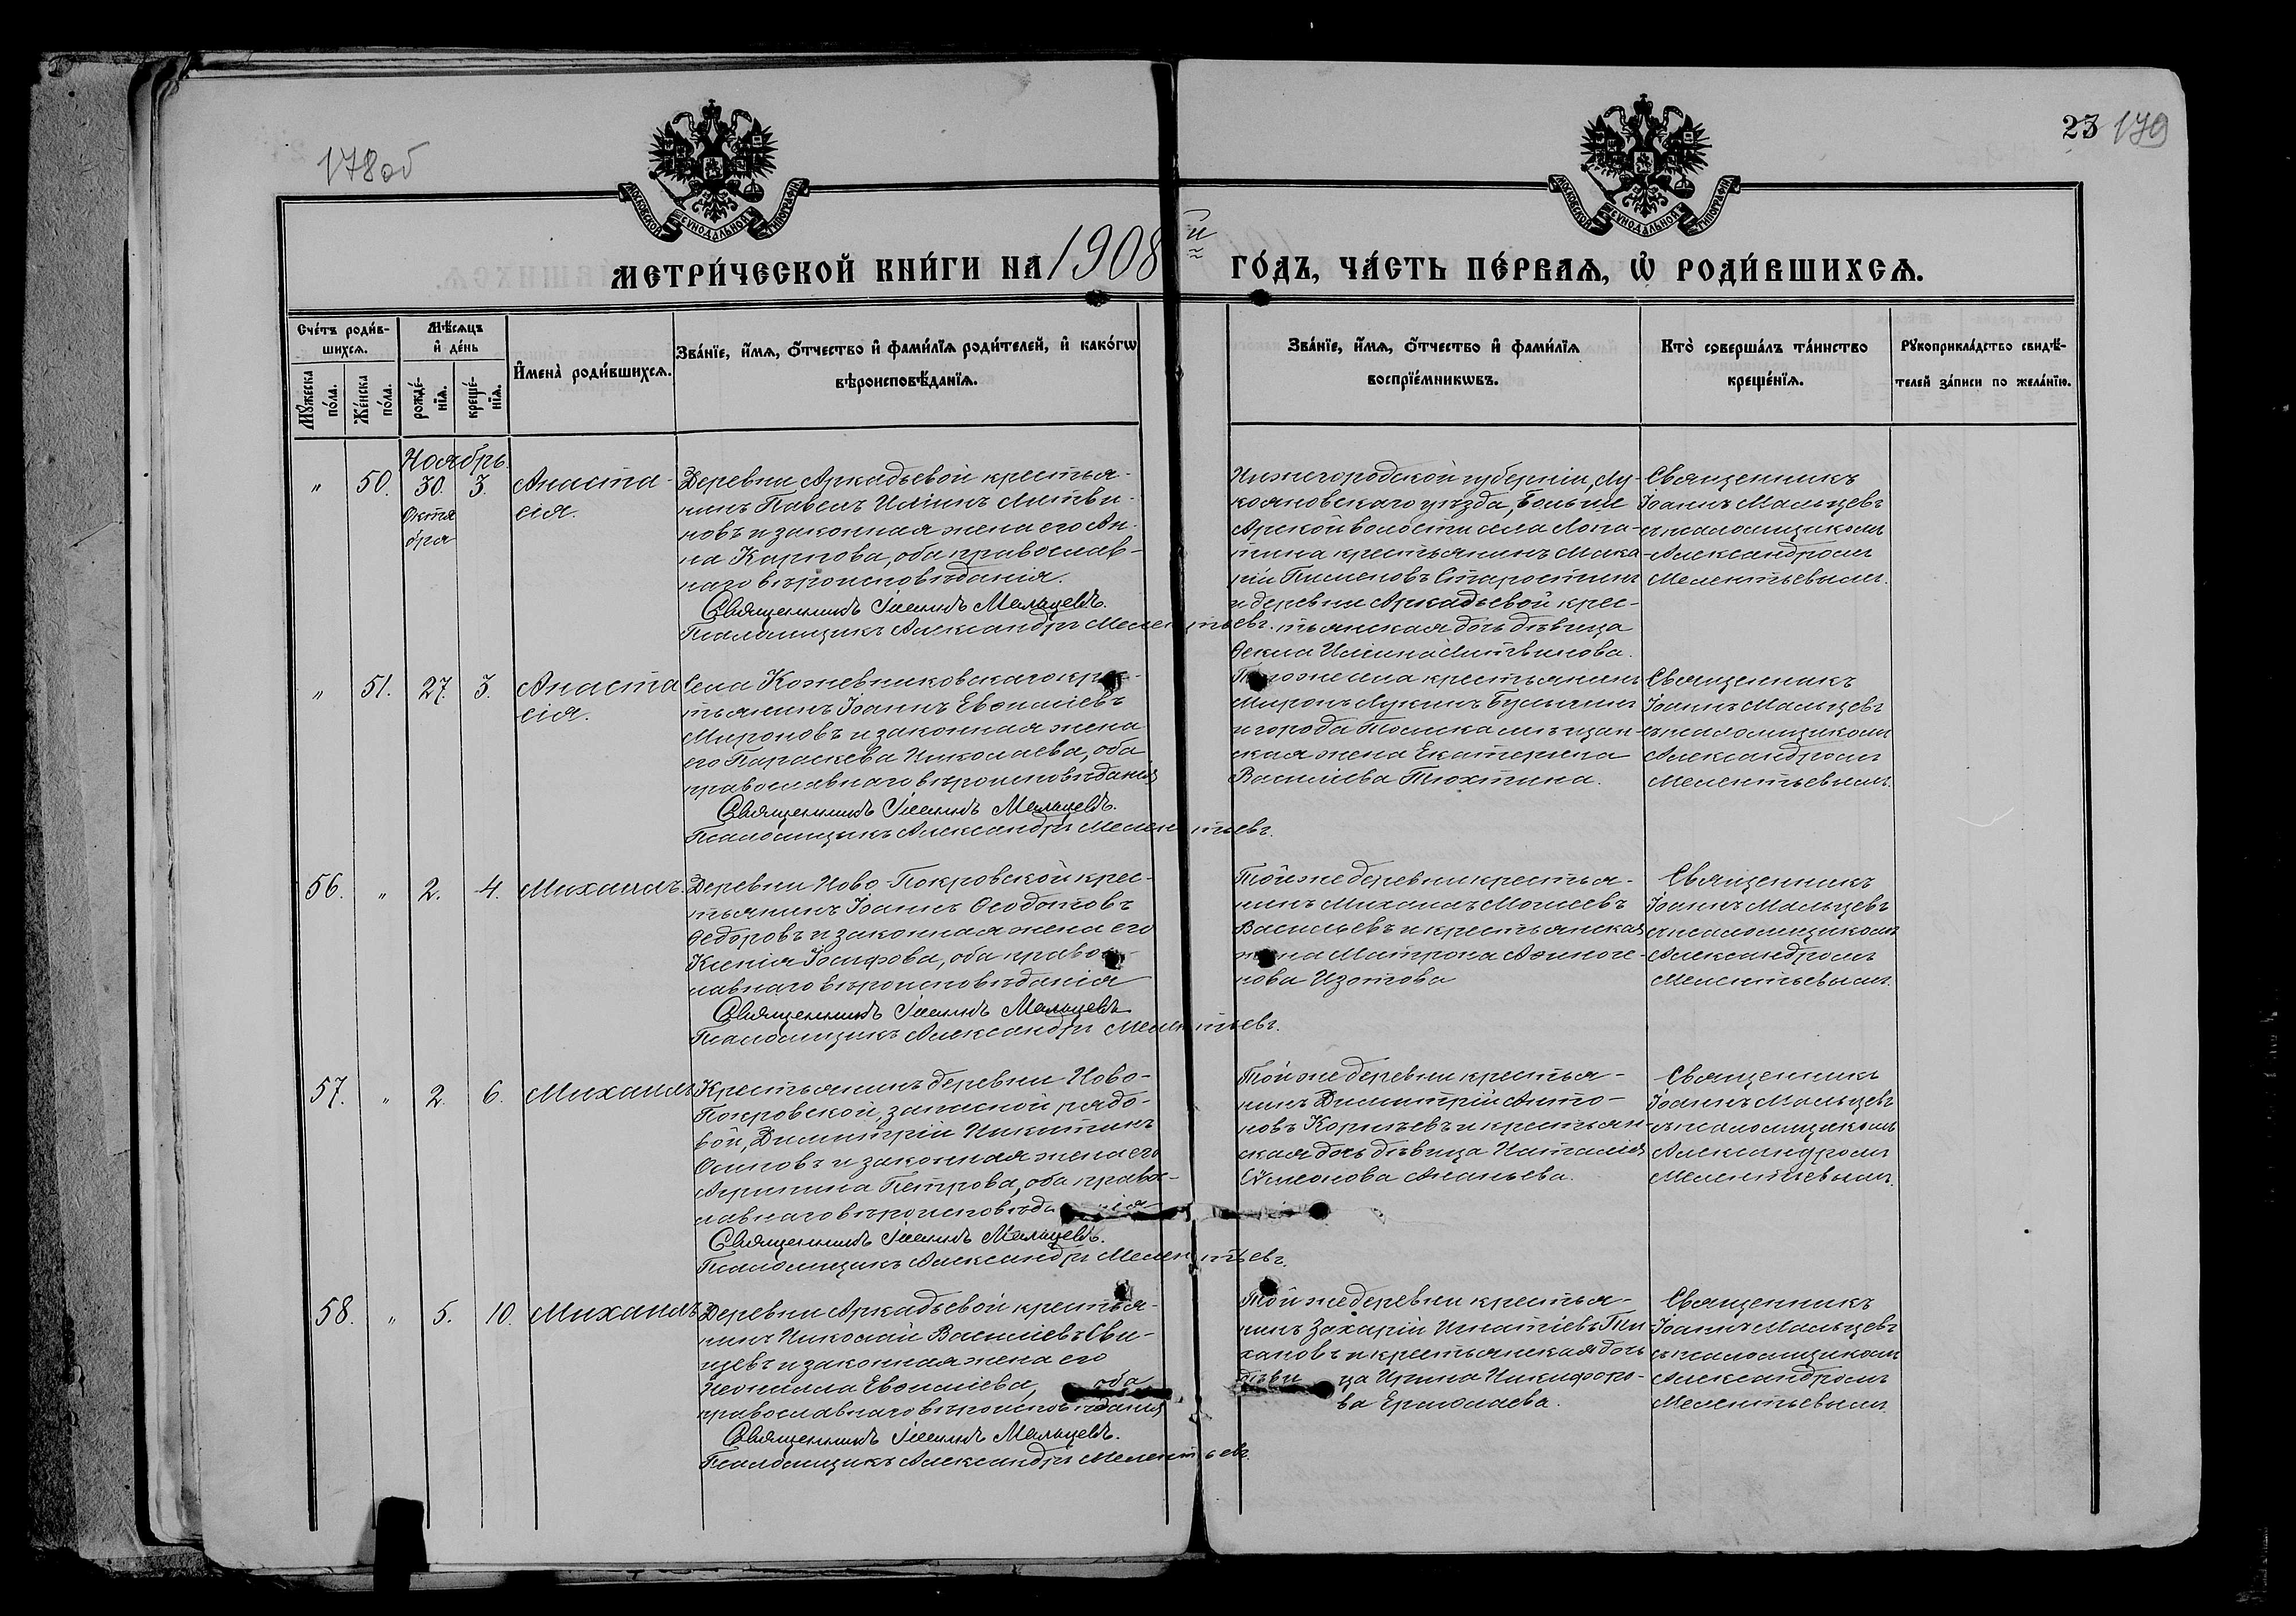 178об
23 179
МОСКОВСКОЙ СѴНОДАЛЬНОЙ ТИПОГРАФІИ
МОСКОВСКОЙ СѴНОДАЛЬНОЙ ТИПОГРАФІИ
МЕТРИ́ЧЕСКОЙ КНИ́ГИ НА 1908 й ГО́ДЪ, ЧА́СТЬ ПЕ́РВАѦ, Ѽ РОДИ́ВШИХСѦ.
Сче́тъ роди́в-
шихсѧ.
Мꙋ́жеска
по́ла.
Же́нска
по́ла.
Мѣ́сѧцъ
и҆ де́нь
рожде́-
нїѧ.
креще́-
нїѧ.
И҆мена̀ роди́вшихсѧ.
Зва́нїе, и҆́мѧ, ѻ҆́тчество и҆ фами́лїѧ роди́телей, и҆ како́гѡ
вѣроисповѣ́данїѧ.
Зва́нїе, и҆́мѧ, ѻ҆́тчество и҆ фами́лїѧ
воспрїе́мникѡвъ.
Кто̀ соверша́лъ та́инство
креще́нїѧ.
Рꙋкоприкла́дство свидѣ́-
телей за́писи по жела́нїю.
Ноябрь.
" 50. 30. 3.
Октя
бря
Анаста-
сія.
Деревни Аркадьевой крестья-
нинъ Павелъ Иліинъ Литви-
новъ и законная жена его Ан-
на Карпова, оба православ-
наго вѣроисповѣданія.
Священникъ Іоаннъ Мальцевъ.
Псаломщикъ Александръ Мелентьевъ.
Нижегородской губерніи, Лу-
кояновскаго уѣзда, Больше
Арской волости села Лопа-
тина крестьянинъ Мака-
рій Пименовъ Старостинъ
и деревни Аркадьевой крес-
тьянская дочь дѣвица
Ѳекла Иліина Литвинова.
Священникъ
Іоаннъ Мальцевъ
съ псаломщикомъ
Александромъ
Мелентьевымъ.
" 51. 27. 3. Анаста
сія.
Села Кожевниковскаго крес-
тьянинъ Іоаннъ Евфиміевъ
Мироновъ и законная жена
его Параскева Николаева, оба
православнаго вѣроисповѣданія
Священникъ Іоаннъ Мальцевъ.
Псаломщикъ Александръ Мелентьевъ.
Того же села крестьянинъ
Миронъ Лукинъ Булыгинъ
и города Томска мѣщан-
ская жена Екатерина
Василіева Тюхтина.
Священникъ
Іоаннъ Мальцевъ
съ псаломщикомъ
Александромъ
Мелентьевымъ.
56. " 2. 4. Михаилъ.
Деревни Ново-Покровской крес-
тьянинъ Іоаннъ Ѳеодотовъ
Ѳедоровъ и законная жена его
Ксенія Іосифова, оба правос-
лавнаго вѣроисповѣданія
Священникъ Іоаннъ Мальцевъ
Псаломщикъ Александръ Мелентьевъ.
Той же деревни крестья-
нинъ Михаилъ Моисеевъ
Васильевъ и крестьянская
жена Матрона Аѳиноге-
нова Изотова
Священникъ
Іоаннъ Мальцевъ
съ псаломщикомъ
Александромъ
Мелентьевымъ.
57. " 2. 6. Михаилъ
Крестьянинъ деревни Ново-
Покровской, запасной рядо-
вой, Димитрій Никитинъ
Осиповъ и законная жена его
Агрипина Петрова, оба правос-
лавнаго вѣроисповѣданія
Священникъ Іоаннъ Мальцевъ.
Псаломщикъ Александръ Мелентьевъ.
Той же деревни крестья-
нинъ Димитрій Анто-
новъ и крестьян-
ская дочь дѣвица Наталія
Сѵмеонова Ананьева.
Священникъ
Іоаннъ Мальцевъ
съ псаломщикомъ
Александромъ
Мелентьевымъ.
58. " 5. 10. Михаилъ
Деревни Аркадьевой крестья-
нинъ Николай Василіевъ Сви-
щевъ и законная жена его
Неонилла Евфиміева, оба
православнаго вѣроисповѣданія
Священникъ Іоаннъ Мальцевъ.
Псаломщикъ Александръ Мелентьевъ.
Той же деревни крестья-
нинъ Захарій Игнатіевъ Ти
хановъ и крестьянская дочь
дѣвица Ирина Никифоро-
ва Ермолаева.
Священникъ
Іоаннъ Мальцевъ
съ псаломщикомъ
Александромъ
Мелентьевымъ.